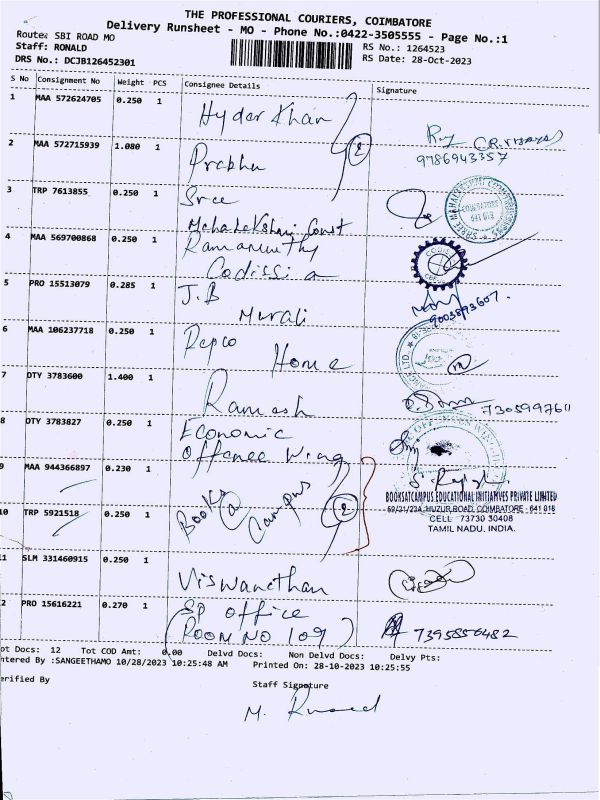 THE PROFESSIONAL COURIERS, COIMBATORE
Delivery Runsheet - MO - Phone No.:0422-3505555 - Page No.:1
Route: SBI ROAD MO
RS No.: 1264523
Staff: RONALD
RS Date: 28-Oct-2023
DRS No.: DCJB126452301
S No Consignment No Weight PCS Consignee Details Signature
1 MAA 572624705 0.250 1
Hyder Khan
2 MAA 572715939 1.080 1
Prabhu
2
9786943357
3 TRP 7613855 0.250 1
Sree
Mahalakshmi Const
COIMBATORE
641 018
4 MAA 569700868 0.250 1
Ramamurthy
Codissia
5 PRO 15513079 0.285 1
J.B
Murali
9003893607.
6 MAA 106237718 0.250 1
Repco
Home
7 OTY 3783600 1.400 1
Ramesh
8 OTY 3783827 0.250 1
Economic
Offence Wing
9 MAA 944366897 0.230 1
10 TRP 5921518 0.250 1
Books @ Campus
2
BOOKSATCAMPUS EDUCATIONAL INITIATIVES PRIVATE LIMITED
HUZUR ROAD, COIMBATORE - 641 018
CELL 73730 30408
TAMIL NADU, INDIA.
11 SLM 331460915 0.250 1
Viswanathan
2 PRO 15616221 0.270 1
SP office
(ROOM NO 109)
7395856482
ot Docs: 12 Tot COD Amt: 0.00 Delvd Docs: Non Delvd Docs: Delvy Pts:
ntered By :SANGEETHAMO 10/28/2023 10:25:48 AM Printed On: 28-10-2023 10:25:55
erified By
Staff Signature